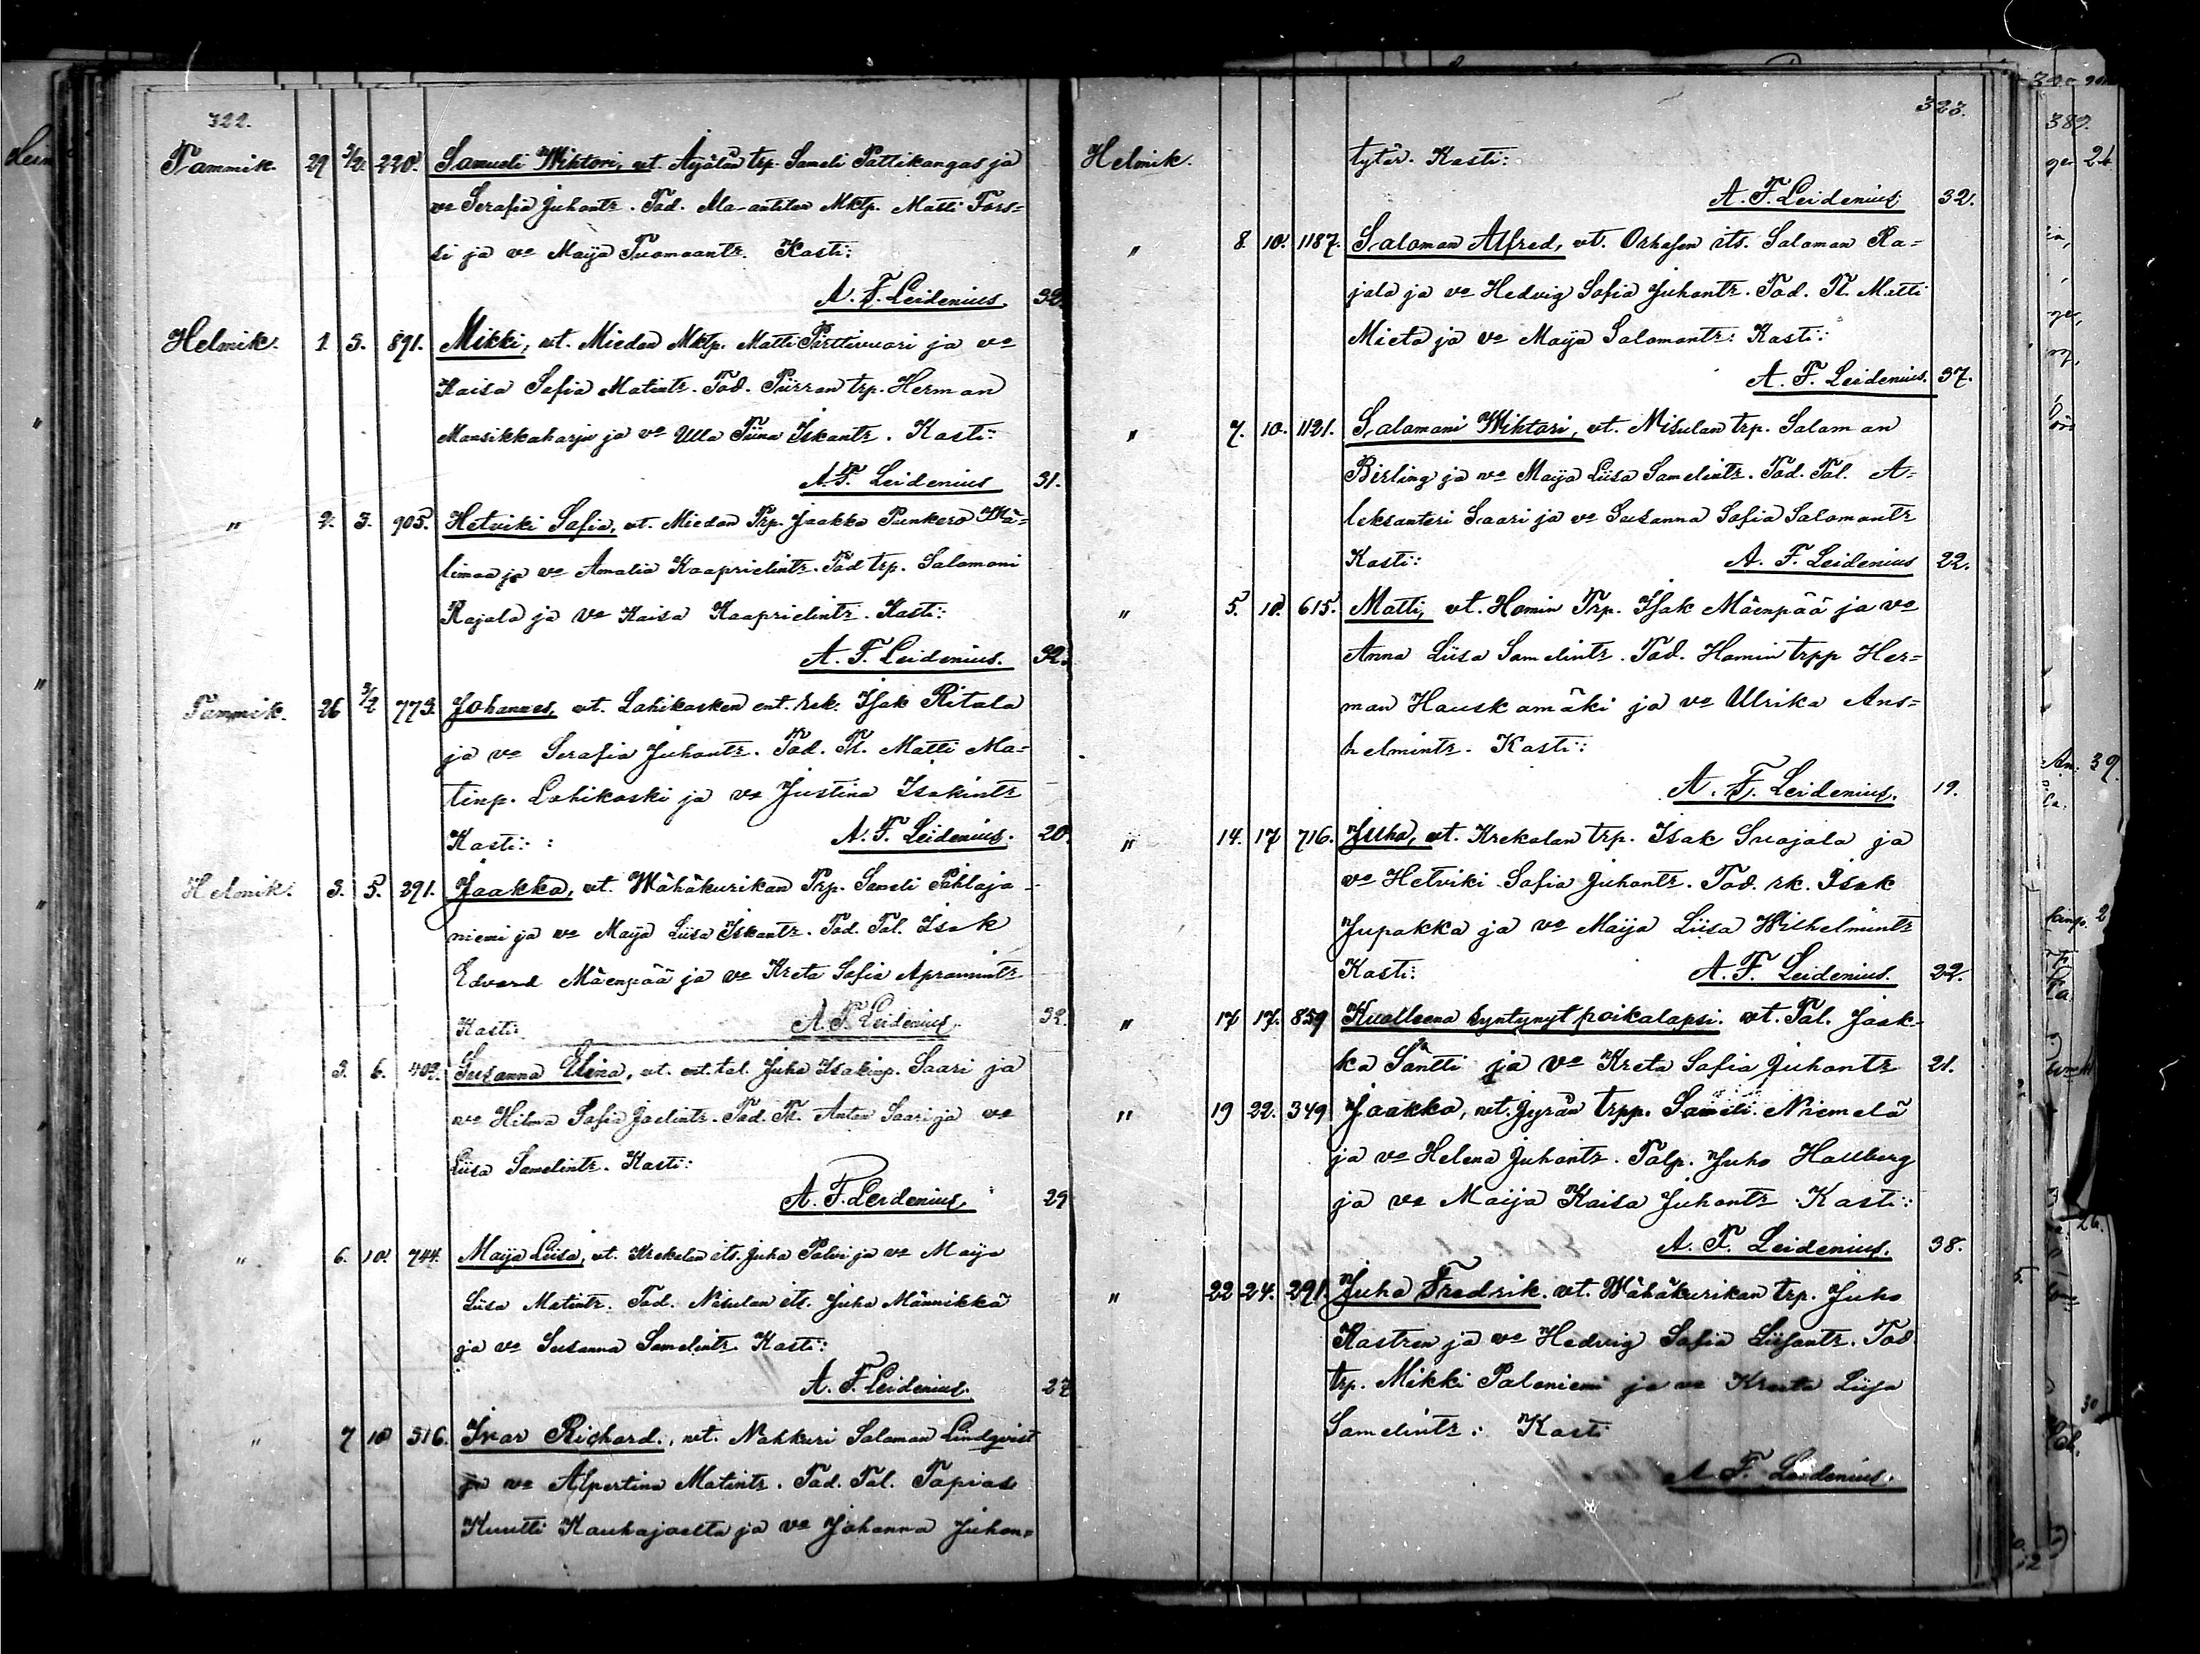 322.
Tammik. 29 3/2. 220. Samueli Wiktori, vt. Äijälän trp. Sameli Pattikangas ja
vo Serafia Juhontr. Tod. Ala-anttilan Mktp. Matti Fors=
si ja vo Maija Tuomaantr. Kasti:
A. F. Leidenius. 32.
Helmik. 1 3. 891. Mikki, vt. Miedon Mktp. Matti Pirttivuori ja vo
Kaisa Sofia Matintr. Tod. Piirran trp. Herman
Mansikkaharju ja vo Ulla Tiina Iskantr. Kasti:
A. F. Leidenius 31.
" 2. 3. 905. Hetviki Sofia, vt. Miedon Trp. Jaakko Punkero Wä-
limaa ja vo Amalia Kaaprielintr. Tod trp. Salomoni
Rajala ja vo Kaisa Kaaprielintr. Kasti:
A. F. Leidenius. 32.
Tammik. 26 3/2 773. Johannes, vt. Lohikosken ent. rsk. Isak Ritala
ja vo Serafia Juhontr. Tod. Tl. Matti Ma=
tinp. Lohikoski ja vo Justina Isakintr
Kasti: A. F. Leidenius. 20.
Helmik. 3. 5. 291. Jaakko, vt. Wähäkurikan Trp. Sameli Pihlaja-
niemi ja vo Maija Liisa Iskantr. Tod. Tal. Isak
Edvard Mäenpää ja vo Kreta Sofia Apramintr
Kasti: A. F. Leidenius. 32.
" 3. 6. 402. Susanna Elina, vt. ent. tal. Juha Isakinp. Saari ja
vo Hilma Sofia Joelintr. Tod. Tl. Anton Saari ja vo
Liisa Samelintr. Kasti:
A. F. Leidenius. 29
" 6. 10. 744. Maija Liisa, vt. Krekolan its. Juha Palvi ja vo Maija
Liisa Matintr. Tod. Nisulan its. Juha Männikkö
ja vo Susanna Samelintr. Kasti:
A. F. Leidenius. 27
" 7 10 516. Ivar Richard., vt. Nahkuri Salomon Lindqvist
ja vo Alpertina Matintr. Tod. Tal. Tapias
Kuutti Kauhajoelta ja vo Johanna Juhon=
323.
Helmik. tytär. Kasti:
A. F. Leidenius 32.
" 8. 10. 1187. Salomon Alfred, vt. its. Salomon Ra=
jala ja vo Hedvig Sofia Juhontr. Tod. Tl. Matti
Mieto ja vo Maija Salomontr: Kasti:
A. F. Leidenius. 37.
" 7. 10. 1121. Salomoni Wihtori, vt. Nisulan trp. Salomon
Birling ja vo Maija Liisa Samelintr. Tod. Tal. A=
leksanteri Saari ja vo Susanna Sofia Salomontr
Kasti: A. F. Leidenius 22.
" 5. 10. 615. Matti, vt. Homin Trp. Isak Mäenpää ja vo
Anna Liisa Samelintr. Tod. Homin trpp Her=
man Hauskamäki ja vo Ulrika Ans=
helmintr. Kasti:
A. F. Leidenius. 19.
" 14. 17 716. Juho, vt. Krekolan trp. Isak Suojala ja
vo Hetviki Sofia Juhontr. Tod. rk. Isak
Jupakka ja vo Maija Liisa Wilhelmintr
Kasti: A. F. Leidenius. 22.
" 17 17. 859 Kuolleena syntynyt poikalapsi. vt. Tal. Jaak-
ko Säntti ja vo Kreta Sofia Juhontr 21.
" 19 22. 349 Jaakko, vt. Jyrän trpp. Sameli Niemelä
ja vo Helena Juhontr. Talp. Juho Hallberg
ja vo Maija Kaisa Juhontr Kasti:
A. F. Leidenius. 38.
" 22 24. 291. Juho Fredrik. vt. Wähäkurikan trp. Juho
Kastren ja vo Hedvig Sofia Liisantr. Tod
trp. Mikki Paloniemi ja vo Kreeta Liisa
Samelintr: Kasti
A. F. Leidenius.